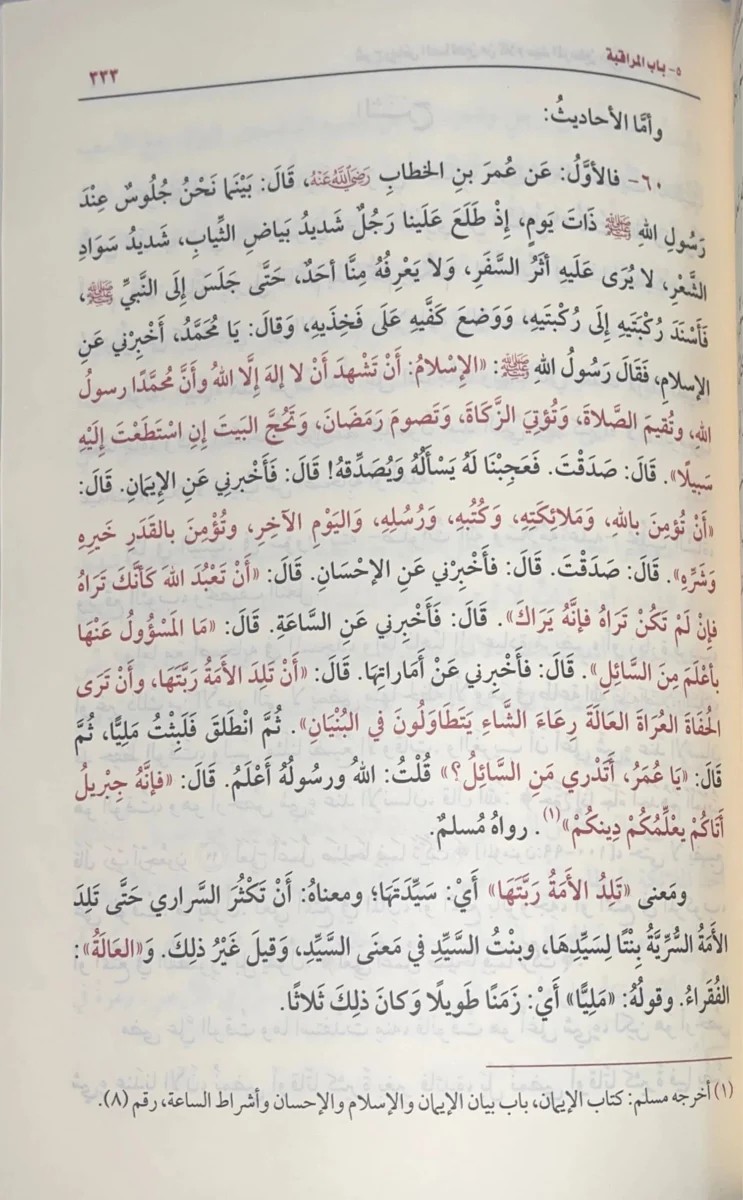 ٥- باب المراقبة
٣٣٣
وأمَّا الأحاديثُ:
٦٠- فالأوَّلُ: عَن عُمرَ بنِ الخطابِ رَضِيَ اللَّهُ عَنْهُ، قَالَ: بَيْنَما نَحْنُ جُلُوسٌ عِنْدَ
رَسُولِ اللهِ ﷺ ذَاتَ يَومٍ، إِذْ طَلَعَ عَلَينا رَجُلٌ شَديدُ بَيَاضِ الثِّيابِ، شَديدُ سَوَادِ
الشَّعْرِ، لا يُرَى عَلَيهِ أثَرُ السَّفَرِ، وَلا يَعْرِفُهُ مِنَّا أحَدٌ، حَتَّى جَلَسَ إِلَى النَّبيِّ ﷺ،
فَأسْنَدَ رُكْبَتَيهِ إِلَى رُكْبَتَيهِ، وَوَضعَ كَفَّيهِ عَلَى فَخِذَيهِ، وَقالَ: يَا مُحَمَّدُ، أخْبِرْني عَنِ
الإسلامِ، فَقَالَ رَسُولُ اللهِ ﷺ: «الإِسْلامُ: أَنْ تَشْهدَ أنْ لا إلهَ إِلَّا اللهُ وأنَّ مُحمَّدًا رسولُ
اللهِ، وتُقيمَ الصَّلاةَ، وَتُؤتِيَ الزَّكَاةَ، وَتَصومَ رَمَضَانَ، وَتَحُجَّ البَيتَ إِنِ اسْتَطَعْتَ إِلَيْهِ
سَبيلًا». قَالَ: صَدَقْتَ. فَعَجِبْنَا لَهُ يَسْأَلُهُ وَيُصَدِّقهُ! قَالَ: فَأَخْبرني عَنِ الإِيمَانِ. قَالَ:
«أنْ تُؤمِنَ باللهِ، وَمَلائِكَتِهِ، وَكُتُبهِ، وَرُسُلِهِ، وَاليَوْمِ الآخِرِ، وتُؤْمِنَ بالقَدَرِ خَيرِهِ
وَشَرِّهِ». قَالَ: صَدَقْتَ. قَالَ: فأَخْبِرْني عَنِ الإحْسَانِ. قَالَ: «أنْ تَعْبُدَ اللهَ كَأنَّكَ تَرَاهُ
فإِنْ لَمْ تَكُنْ تَرَاهُ فإنَّهُ يَرَاكَ». قَالَ: فَأَخْبِرني عَنِ السَّاعَةِ. قَالَ: «مَا المَسْؤُولُ عَنْهَا
بأعْلَمَ مِنَ السَّائِلِ». قَالَ: فأخبِرني عَنْ أمَاراتِهَا. قَالَ: «أنْ تَلِدَ الأَمَةُ رَبَّتَهَا، وأنْ تَرَى
الحُفَاةَ العُرَاةَ العَالَةَ رِعَاءَ الشَّاءِ يَتَطَاوَلُونَ في البُنْيَانِ». ثُمَّ انْطَلقَ فَلَبِثْتُ مَلِيًّا، ثُمَّ
قَالَ: «يَا عُمَرُ، أَتَدْري مَنِ السَّائِلُ؟» قُلْتُ: اللهُ ورسُولُهُ أعْلَمُ. قَالَ: «فإنَّهُ جِبْريلُ
أَتَاكُمْ يعْلِّمُكُمْ دِينكُمْ»(١). رواهُ مُسلمٌ.
ومَعنى «تَلِدُ الأَمَةُ رَبَّتَهَا» أَيْ: سَيِّدَتَهَا؛ ومعناهُ: أنْ تَكْثُرَ السَّراري حَتَّى تَلِدَ
الأَمَةُ السُّرِّيَّةُ بِنْتًا لِسَيِّدِهَا، وبنْتُ السَّيِّدِ في مَعنَى السَّيِّدِ، وَقيلَ غَيْرُ ذلِكَ. وَ«العَالَةُ»:
الفُقَراءُ. وقولُهُ: «مَلِيًّا» أَيْ: زَمَنًا طَويلًا وَكانَ ذلِكَ ثَلاثًا.
(١) أخرجه مسلم: كتاب الإيمان، باب بيان الإيمان والإسلام والإحسان وأشراط الساعة، رقم (٨).